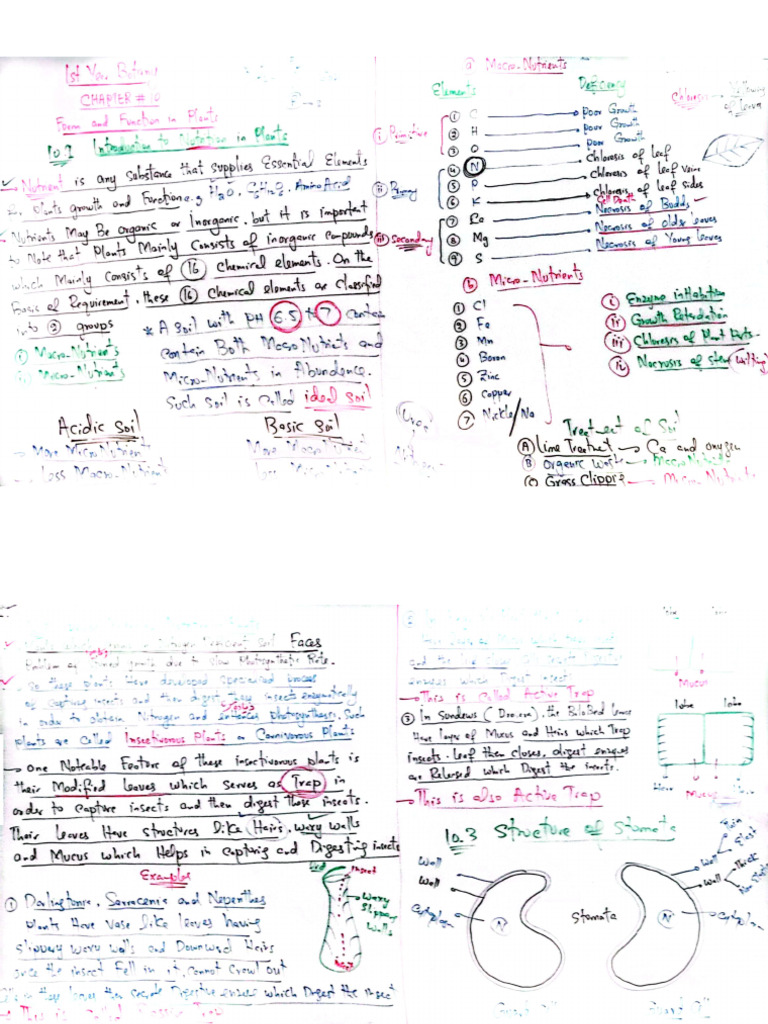 1st Year Botany
CHAPTER # 10
Form and Function in Plants
10.1 Introduction to Nutrition in Plants
Nutrient is any substance that supplies Essential Elements
Plants growth and Function e.g H₂O, C₆H₁₂O₆, Amino Acid
Nutrients May Be organic or Inorganic. but it is important
to Note that Plants Mainly Consists of inorganic Compounds
which Mainly Consists of 16 chemical elements. On the
Basis of Requirement, these 16 Chemical elements are classified
into 2 groups
i Macro-Nutrients
ii Micro-Nutrients
* A soil with pH 6.5 to 7 contain
contain Both Macro Nutrients and
Micro-Nutrients in Abundence.
Such soil is called ideal soil
Acidic Soil
→ More Micro Nutrient
→ Less Macro Nutrient
Basic Soil
More Macro Nutrient
Less Micro
a Macro-Nutrients
Elements Deficiency
i Primitive
1 C poor Growth
2 H poor Growth
3 O poor Growth
ii
4 N chlorosis of leaf
5 P chlorosis of leaf veins
6 K chlorosis of leaf sides
iii Secondary
Cell Death
7 Ca Necrosis of Budds
8 Mg Necrosis of Old leaves
9 S Necrosis of Young leaves
Chlorosis → Yellowing of leaves
b Micro-Nutrients
1 Cl
2 Fe
3 Mn
4 Boron
5 Zinc
6 Copper
7 Nickle/Na
i Enzyme inhibition
ii Growth Retardation
iii Chlorosis of Plant Parts
iv Necrosis of stem (wilting)
Treatment of Soil
A Lime Treatment → Ca and oxygen
B organic Waste → Macro Nutrients
C Grass Clipping → Micro Nutrients
Soil Faces
Problem of growth due to slow Photosynthetic Rate.
So these plants Have developed specialized process
of Capturing insects and then digest they insects enzymatically
in order to obtain Nitrogen and photosynthesis. Such
plants are Called Insectivorous Plants or Carnivorous Plants
→ one Noteable Feature of these insectivorous plants is
their Modified leaves which serves as Trap in
order to capture insects and then digest those insects.
Their leaves Have structures like Hairs, waxy walls
and Mucus which Helps in capturing and Digesting insects
Examples
1 Darlingtonia, Sarracenia and Nepenthes
plants Have vase like leaves having
slippery waxy walls and Downward Hairs
once the insect Fell in it, cannot crawl out
which Digest the insect
→ This is called Passive Trap
insect
Waxy
Slippery
Walls
enzymes which Digest insects
→ This is called Active Trap
3 In Sundews (Drosera), the Bilobed leaves
Have layer of Mucus and Hairs which Trap
insects. leaf then closes, digest enzymes
are Released which Digest the insects.
→ This is also Active Trap
Mucus
lobe lobe
Hair Mucus Hair
10.3 Structure of Stomata
Wall
Wall
Cytoplasm
N
Stomata
N
Wall
Thin
Wall
Thick
Cytoplasm
Guard Cell
Guard Cell